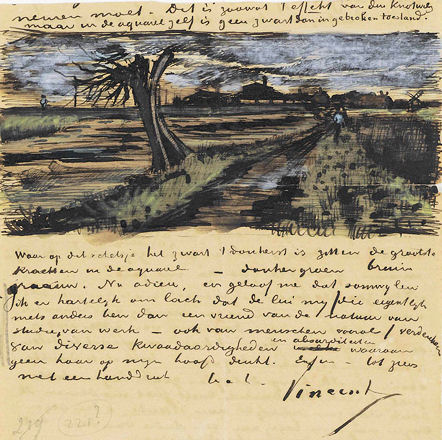 nemen moet. Dit is zoowat 't effekt van den knotwilg
maar in de aquarel zelf is geen zwart dan in gebroken toestand.
Waar op dit schetsje het zwart 't donkerst is zitten de grootste
krachten in de aquarel – donkergroen bruin
graauw. Nu adieu, en geloof me dat somwylen
ik er hartelyk om lach dat de lui my die eigentlyk
niets anders ben dan een vriend van de natuur van
studie, van werk – ook van menschen vooral verdenken
van diverse kwaadaardigheden en absurditeiten waaraan
geen haar op myn hoofd denkt. Enfin – tot ziens
met een handdruk t. à t.
Vincent